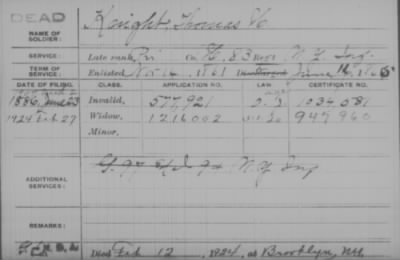 DEAD
NAME OF SOLDIER: Knight, Thomas
SERVICE: Late rank, Pri Co. H, 83 Regt. N.Y. Inf.
TERM OF SERVICE: Enlisted Nov. 14, 1861 Discharged June 16, 1865
DATE OF FILING. CLASS. APPLICATION NO. LAW CERTIFICATE NO.
1886, Invalid, 577,921 1034581
1924 Feb 27 Widow, 1216002 949960
Minor,
ADDITIONAL SERVICES: G. 97 & N.Y. Inf
REMARKS:
Died Feb 12, 1924, at Brooklyn, N.Y.